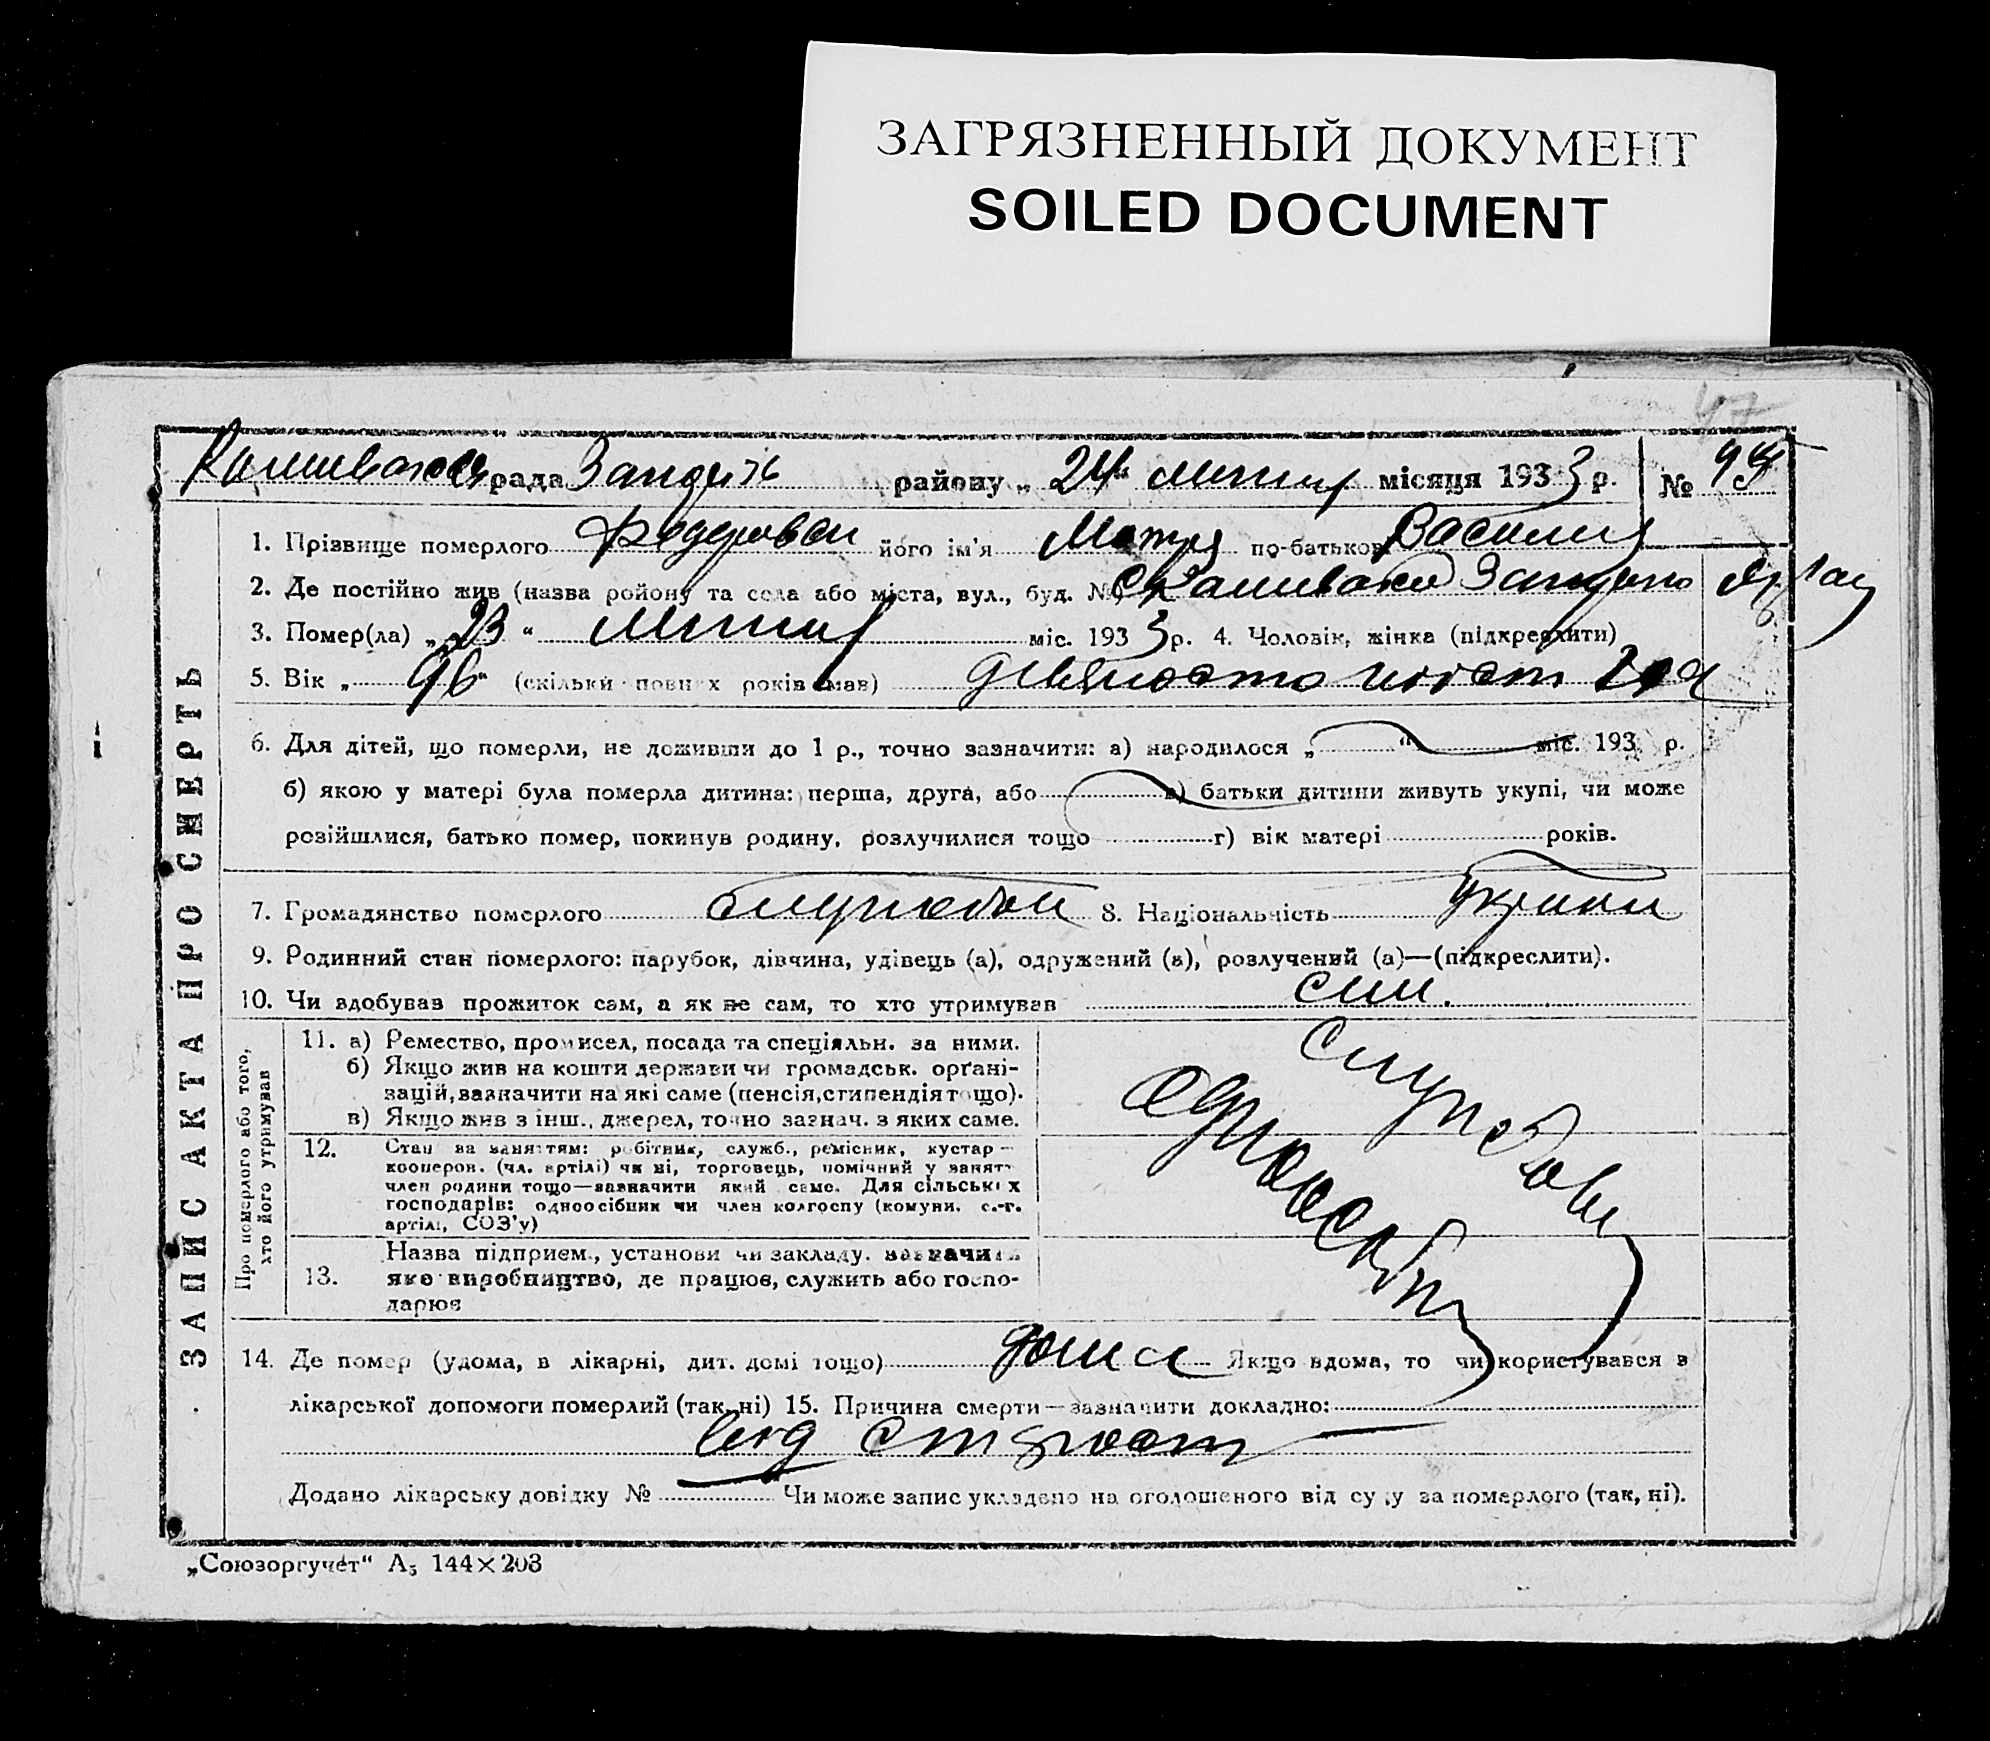 ЗАГРЯЗНЕННЫЙ ДОКУМЕНТ
SOILED DOCUMENT
47
рада району „ 24 “ місяця 1933 р. №
1. Прізвище померлого його ім'я Мотря по-батькові Василів
2. Де постійно жив (назва ройону та села або міста, вул., буд. №)
3. Помер(ла) „ 23 “ міс. 1933 р. 4. Чоловік, жінка (підкреслити)
5. Вік „ 96 “ (скільки повних років мав) девяносто шість
6. Для дітей, що померли, не доживши до 1 р., точно зазначити: а) народилося „ “ міс. 193 р.
б) якою у матері була померла дитина: перша, друга, або в) батьки дитини живуть укупі, чи може
розійшлися, батько помер, покинув родину, розлучилися тощо г) вік матері років.
7. Громадянство померлого 8. Національність
9. Родинний стан померлого: парубок, дівчина, удівець (а), одружений (а), розлучений (а)—(підкреслити).
10. Чи здобував прожиток сам, а як не сам, то хто утримував син.
ЗАПИС АКТА ПРО СМЕРТЬ
Про померлого або того,
хто його утримував
11. а) Ремество, промисел, посада та спеціяльн. за ними.
б) Якщо жив на кошти держави чи громадськ. орґані-
зацій, зазначити на які саме (пенсія, стипендія тощо).
в) Якщо жив з інш., джерел, точно зазнач. з яких саме.
12. Стан за заняттям: робітник, служб., ремісник, кустар—
кооперов. (чл. артілі) чи ні, торговець, помічний у занятт
член родини тощо—зазначити який саме. Для сільських
господарів: одноосібник чи член колгоспу (комуни, с.-г.
артілі, СОЗ'у)
одноосібн
13. Назва підприєм., установи чи закладу. зазначити
яке виробництво, де працює, служить або госпо-
дарює
14. Де помер (удома, в лікарні, дит. домі тощо) дома Якщо вдома, то чи користувався з
лікарської допомоги померлий (так, ні) 15. Причина смерти—зазначити докладно:
від старости
Додано лікарську довідку № Чи може запис укладено на оголошеного від суду за померлого (так, ні).
„Союзоргучёт“ А₅ 144×203